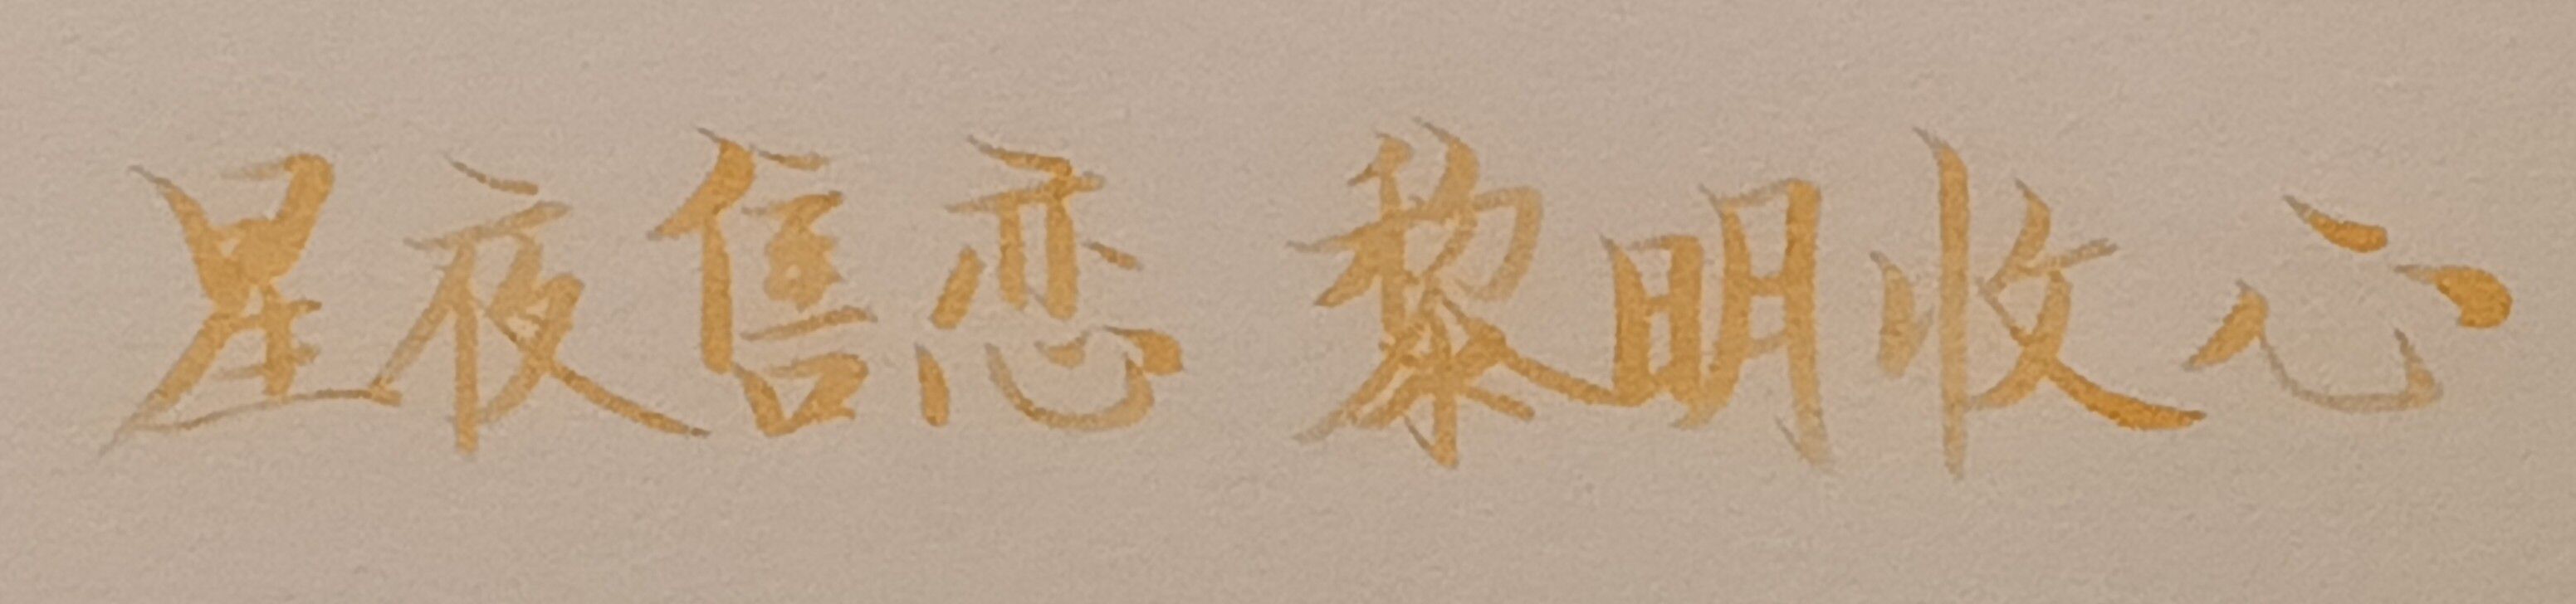 星夜售恋 黎明收心